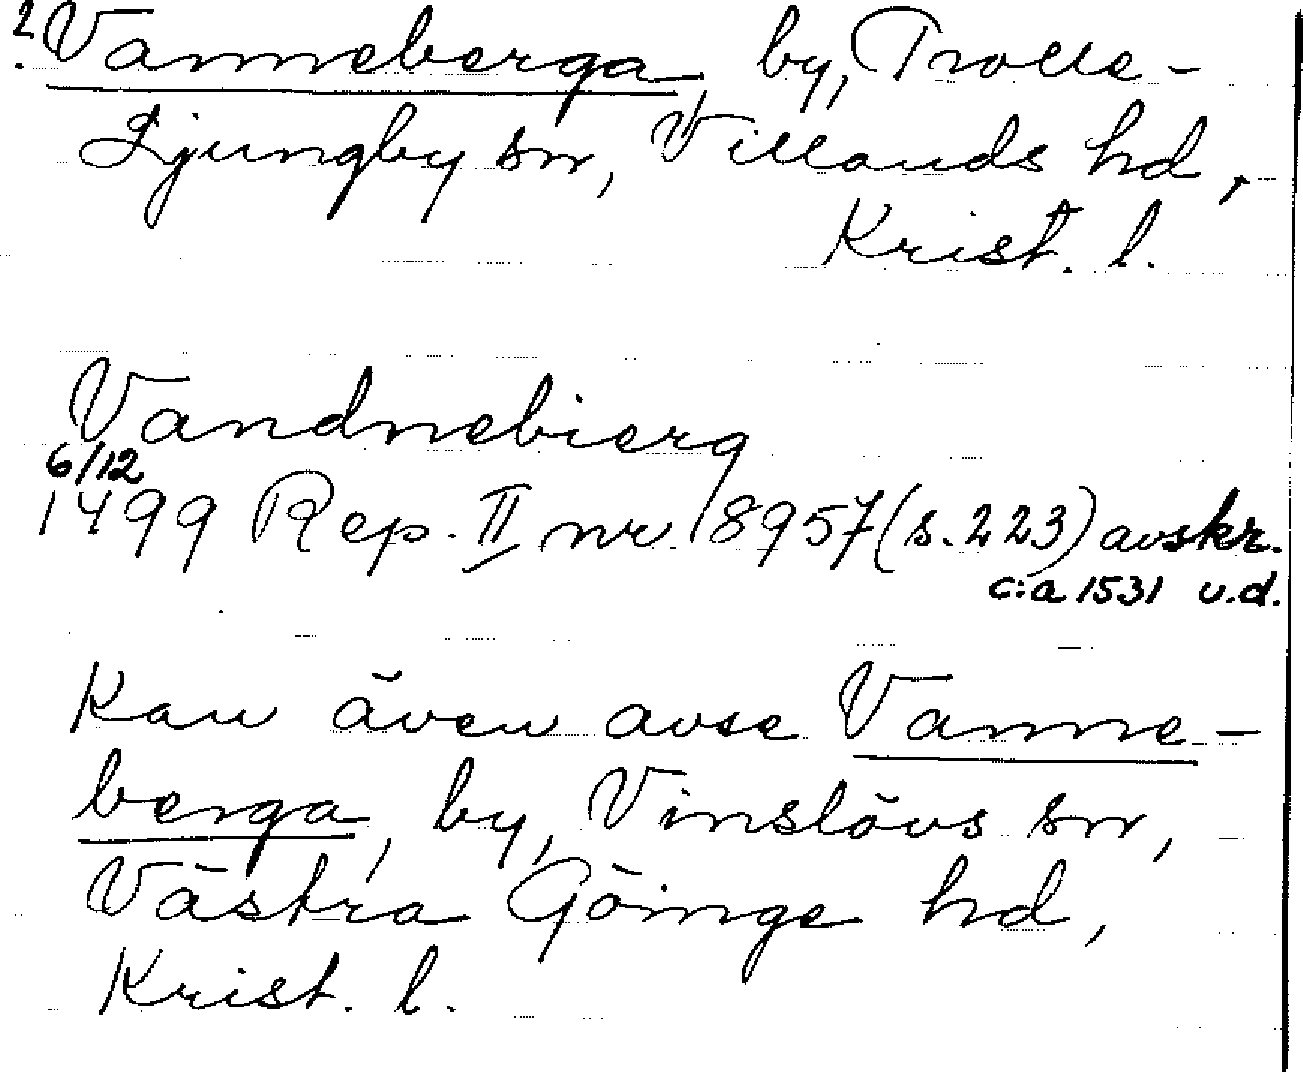 ? Vanneberga, by, Trolle-
Ljungby sn, Villands hd,
Krist. l.
Vandnebierg
6/12
1499 Rep. II nr 8957 (s. 223) avskr.
c:a 1531 u.d.
Kan även avse Vanne-
berga, by, Vinslövs sn,
Västra Göinge hd,
Krist. l.